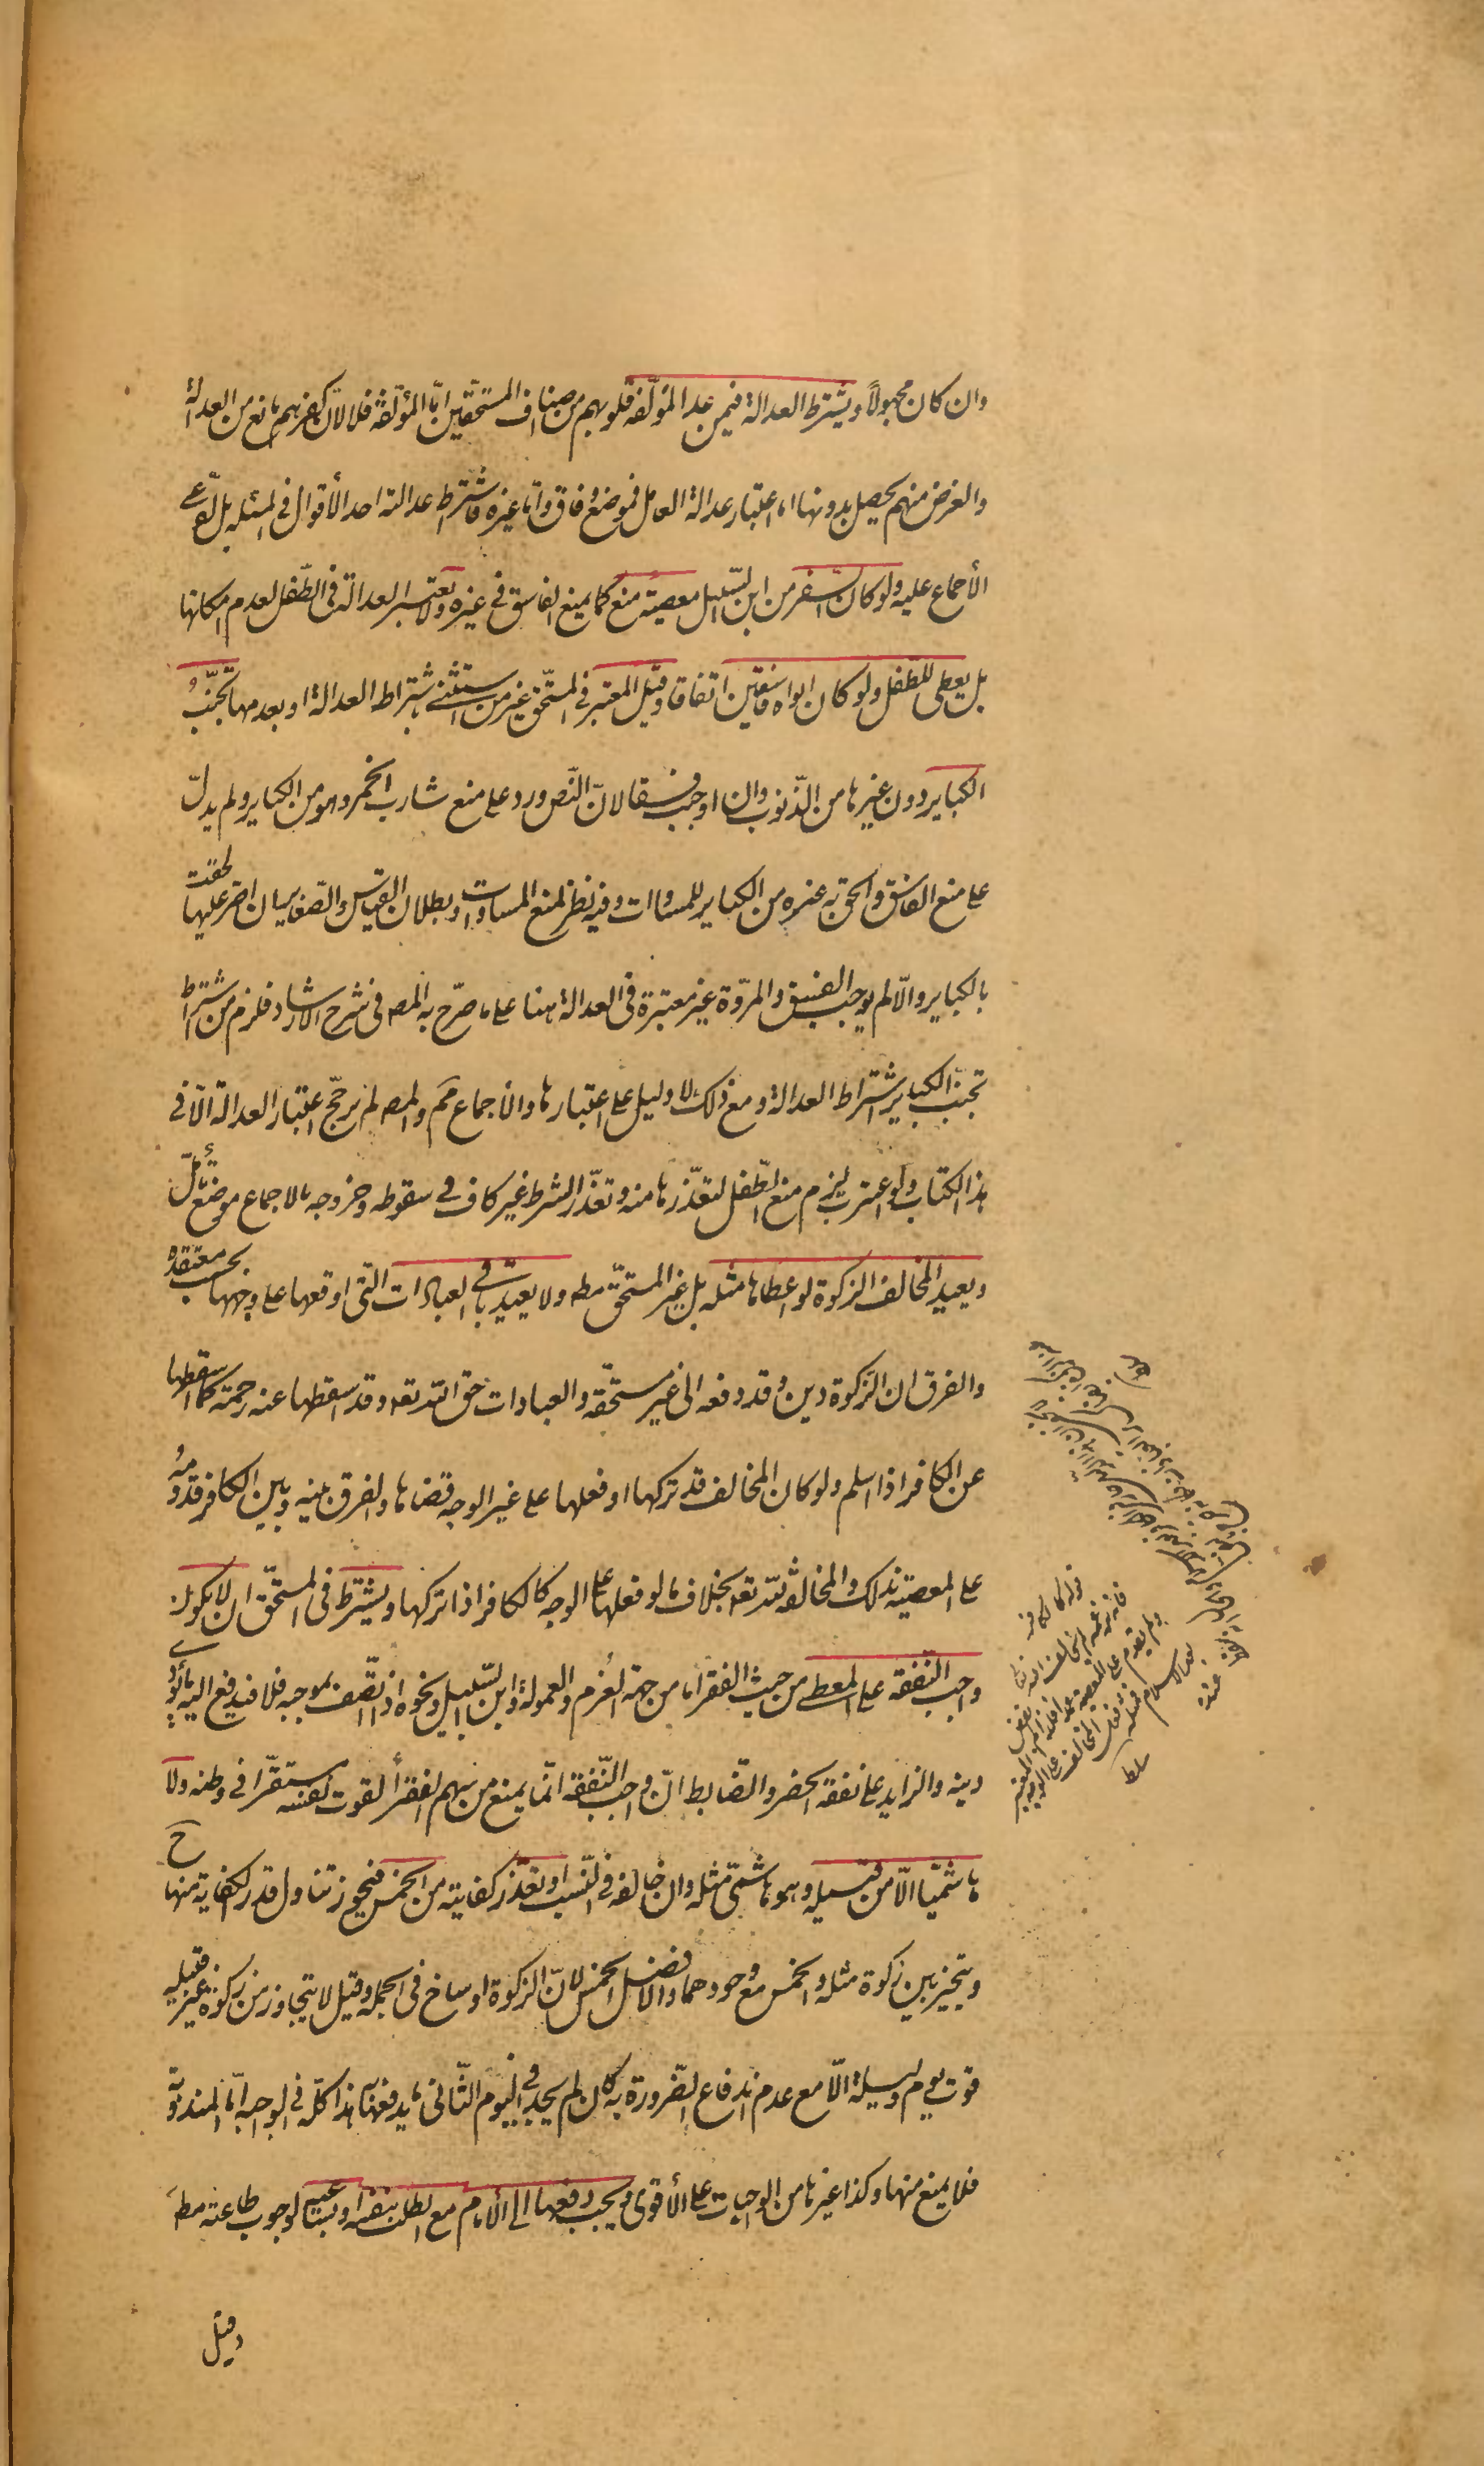 وان كان مجهولاً ويشترط العدالة فيمن عدا المؤلّفة قلوبهم من اصناف المستحقّين امّا المؤلّفة فلا لانّ كفرهم مانع من العدالة
والغرض منهم يحصل بدونها اما اعتبار عدالة العامل فموضع وفاق وامّا غيره فاشتراط عدالته احد الأقوال في المسئلة بل ادّعى
الأجماع عليه ولو كان السّفر من ابن السّبيل معصية منع كما يمنع الفاسق في غيره ولا تعتبر العدالة في الطّفل لعدم امكانها
بل يعطى للطّفل ولو كان ابواه فاسقين اتفاقا وقيل المعتبر في المستحقّ غير من استثنى اشتراط العدالة او بعدمها تجنّب
الكباير دون غيرها من الذّنوب وان اوجبت فسقا لانّ النّص ورد على منع شارب الخمر وهو من الكباير ولم يدلّ
على منع الفاسق والحق به غيره من الكباير للمساوات وفيه نظر لمنع المساوات وبطلان القياس والصّغاير ان اصرّ عليها لحقت
بالكباير والاّ لم يوجب الفسق والمروّة غير معتبرة في العدالة هنا على ما صرّح به المصـ في شرح الارشاد فلزم من اشتراط
تجنّب الكباير اشتراط العدالة ومع ذلك لا دليل على اعتبارها والأجماع مم والمصـ لم يرجّح اعتبار العدالة الاّ في
هذا الكتاب ولو اعتبرت لزم منع الطّفل لتعذّرها منه وتعذّر الشرط غير كاف في سقوطه وخروجه بالاجماع موضع تأمّل
ويعيد المخالف الزكوة لو اعطاها مثله بل غير المستحقّ مطـ ولا يعيد باقي العبادات التي اوقعها على وجهها بحسب معتقده
والفرق ان الزكوة دين وقد دفعه الى غير مستحقّه والعبادات حقّ الله تعـ وقد اسقطها عنه رحمة كما اسقطها
عن الكافر اذا اسلم ولو كان المخالف قد تركها او فعلها على غير الوجه قضاها والفرق بينه وبين الكافر قدومه
على المعصية بذلك والمخالفة لله تعـ بخلاف ما لو فعلها على الوجه كالكافر اذا تركها ويشترط في المستحقّ ان لا يكون
واجب النّفقة على المعطي من حيث الفقر اما من جهة الغرم والعمولة وابن السّبيل ونحوه اذا اتّصف بموجبه فلا فيدفع اليه ما يؤدّي
دينه والزايد على نفقة الحضر والضّابط انّ واجب النّفقة انّما يمنع من سهم الفقراء لقوت نفسه مستقرّا في وطنه ولا
هاشميّا الاّ من قبيله وهو هاشميّ مثله وان خالفه في النّسب او تعذّر كفايته من الخمس فيجوز تناول قدر الكفاية منها ح
ويتخيّر بين زكوة مثله والخمس مع وجودهما والافضل الخمس لانّ الزكوة اوساخ في الجملة وقيل لا يتجاوز من زكوة غير قبيله
قوت يوم وليلة الاّ مع عدم اندفاع الضّرورة به كأن لم يجد في اليوم الثّاني ما يدفعها به هذا كلّه في الواجبة امّا المندوبة
فلا يمنع منها وكذا غيرها من الواجبات على الأقوى ويجب دفعها الى الأمام مع الطلب بنفسه او بساعيه لوجوب طاعته مطـ
وقيل
قوله كالكافر